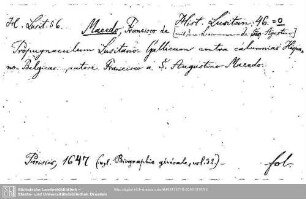 H. Lusit. 56.
Macedo, Francisco de
Hist. Lusitan. 46.
Propugnaculum Lusitano Gallicum contra calumnias Hispa-
no Belgicas, autore Francisco a S. Augustino Macedo.
Parisiis, 1647 (vgl. Biographie générale, vol. 32). fol.